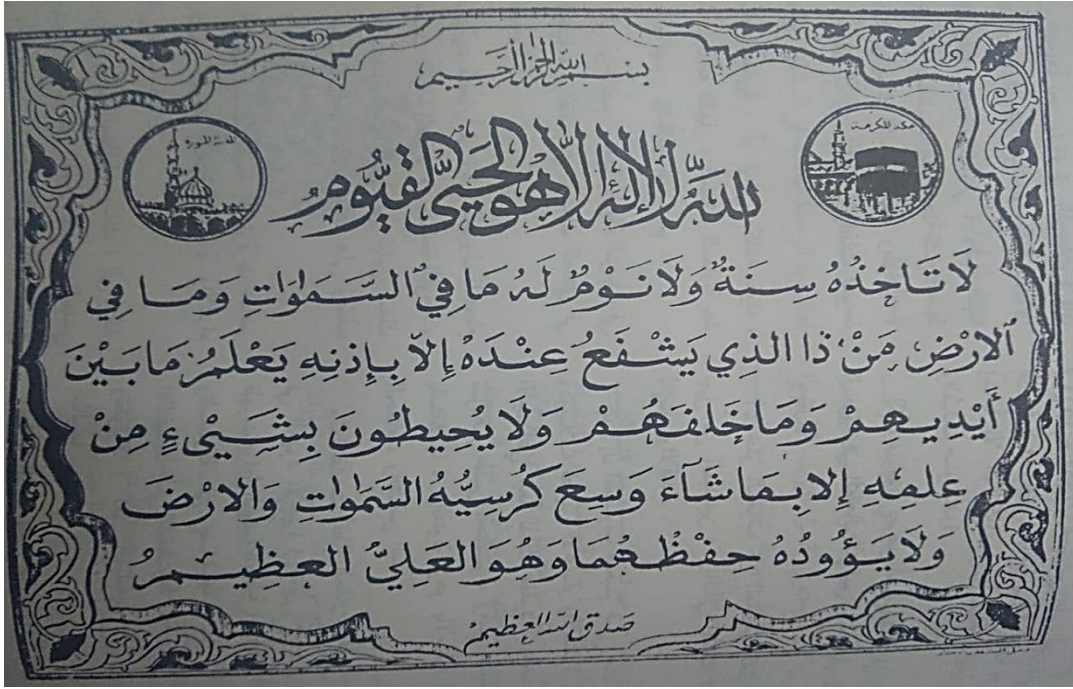 بسم الله الرحمن الرحيم
مكة المكرمة
المدينة المنورة
اللَّهُ لا إله إلاَّ هو الحيُّ القيُّومُ
لَا تَاخذُهُ سِنَةٌ وَلَا نَوْمٌ لَهُ مَا فِي السَّمَوَاتِ وَمَا فِي
الارْضِ مَنْ ذا الذي يَشْفَعُ عِنْدَهْ إِلاّ بِإِذنِهِ يَعْلَمُ مَا بَيْنَ
أَيْدِيهِمْ وَمَا خَلفَهُمْ وَلَا يُحِيطُونَ بِشَيْءٍ مِنْ
عِلمِهِ إِلا بِمَا شَآءَ وَسِعَ كُرْسِيُّهُ السَّمٰوٰتِ وَالارْضَ
وَلَا يَؤُودُهُ حِفْظُهُمَا وَهُوَ العَلِيُّ العظِيمُ
صدق الله العظيم